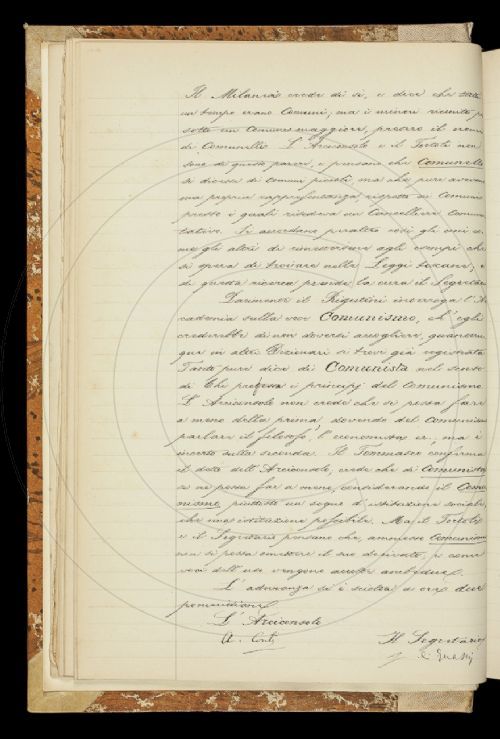 Il Milanesi crede di sì, e dice che tutti
un tempo erano Comuni; ma i minori riuniti
sotto un Comune maggiore, presero il nome
di Comunello. L'Arciconsolo e il Tortoli non
sono di questo parere, e pensano che Comunello
si dicesse di comuni piccoli, ma che pure avevano
una propria rappresentanza rispetto ai Comuni
presso i quali risedeva un Cancelliere Comu
nitativo. Si accordano peraltro così gli uni co
me gli altri di rimettersene agli esempi che
si spera di trovare nelle Leggi toscane; e
di questa ricerca prende la cura il Segretario.
Parimente il Rigutini interroga l'Ac
cademia sulla voce Comunismo, ch'egli
crederebbe di non doversi accogliere, quantun
que in altri Dizionari si trovi già registrata.
Tanto pure dice di Comunista nel senso
di Chi professa i principj del Comunismo.
L'Arciconsolo non crede che si possa fare
a meno della prima dovendo del Comunismo
parlare il filosofo, l'economista ec., ma è
incerto sulla seconda. Il Tommaseo conferma
il detto dell'Arciconsolo, crede che di Comunista
se ne possa far a meno, considerando il Comu
nismo piuttosto un sogno d'istituzione sociale,
che una istituzione possibile. Ma il Tortoli
e il Segretario pensano che, ammesso Comunismo
non si possa omettere il suo derivato, e come
voci dell'uso vengono accolte ambedue.
L'adunanza si è sciolta a ore due
pomeridiane.
L'Arciconsolo
A. Conti
Il Segretario